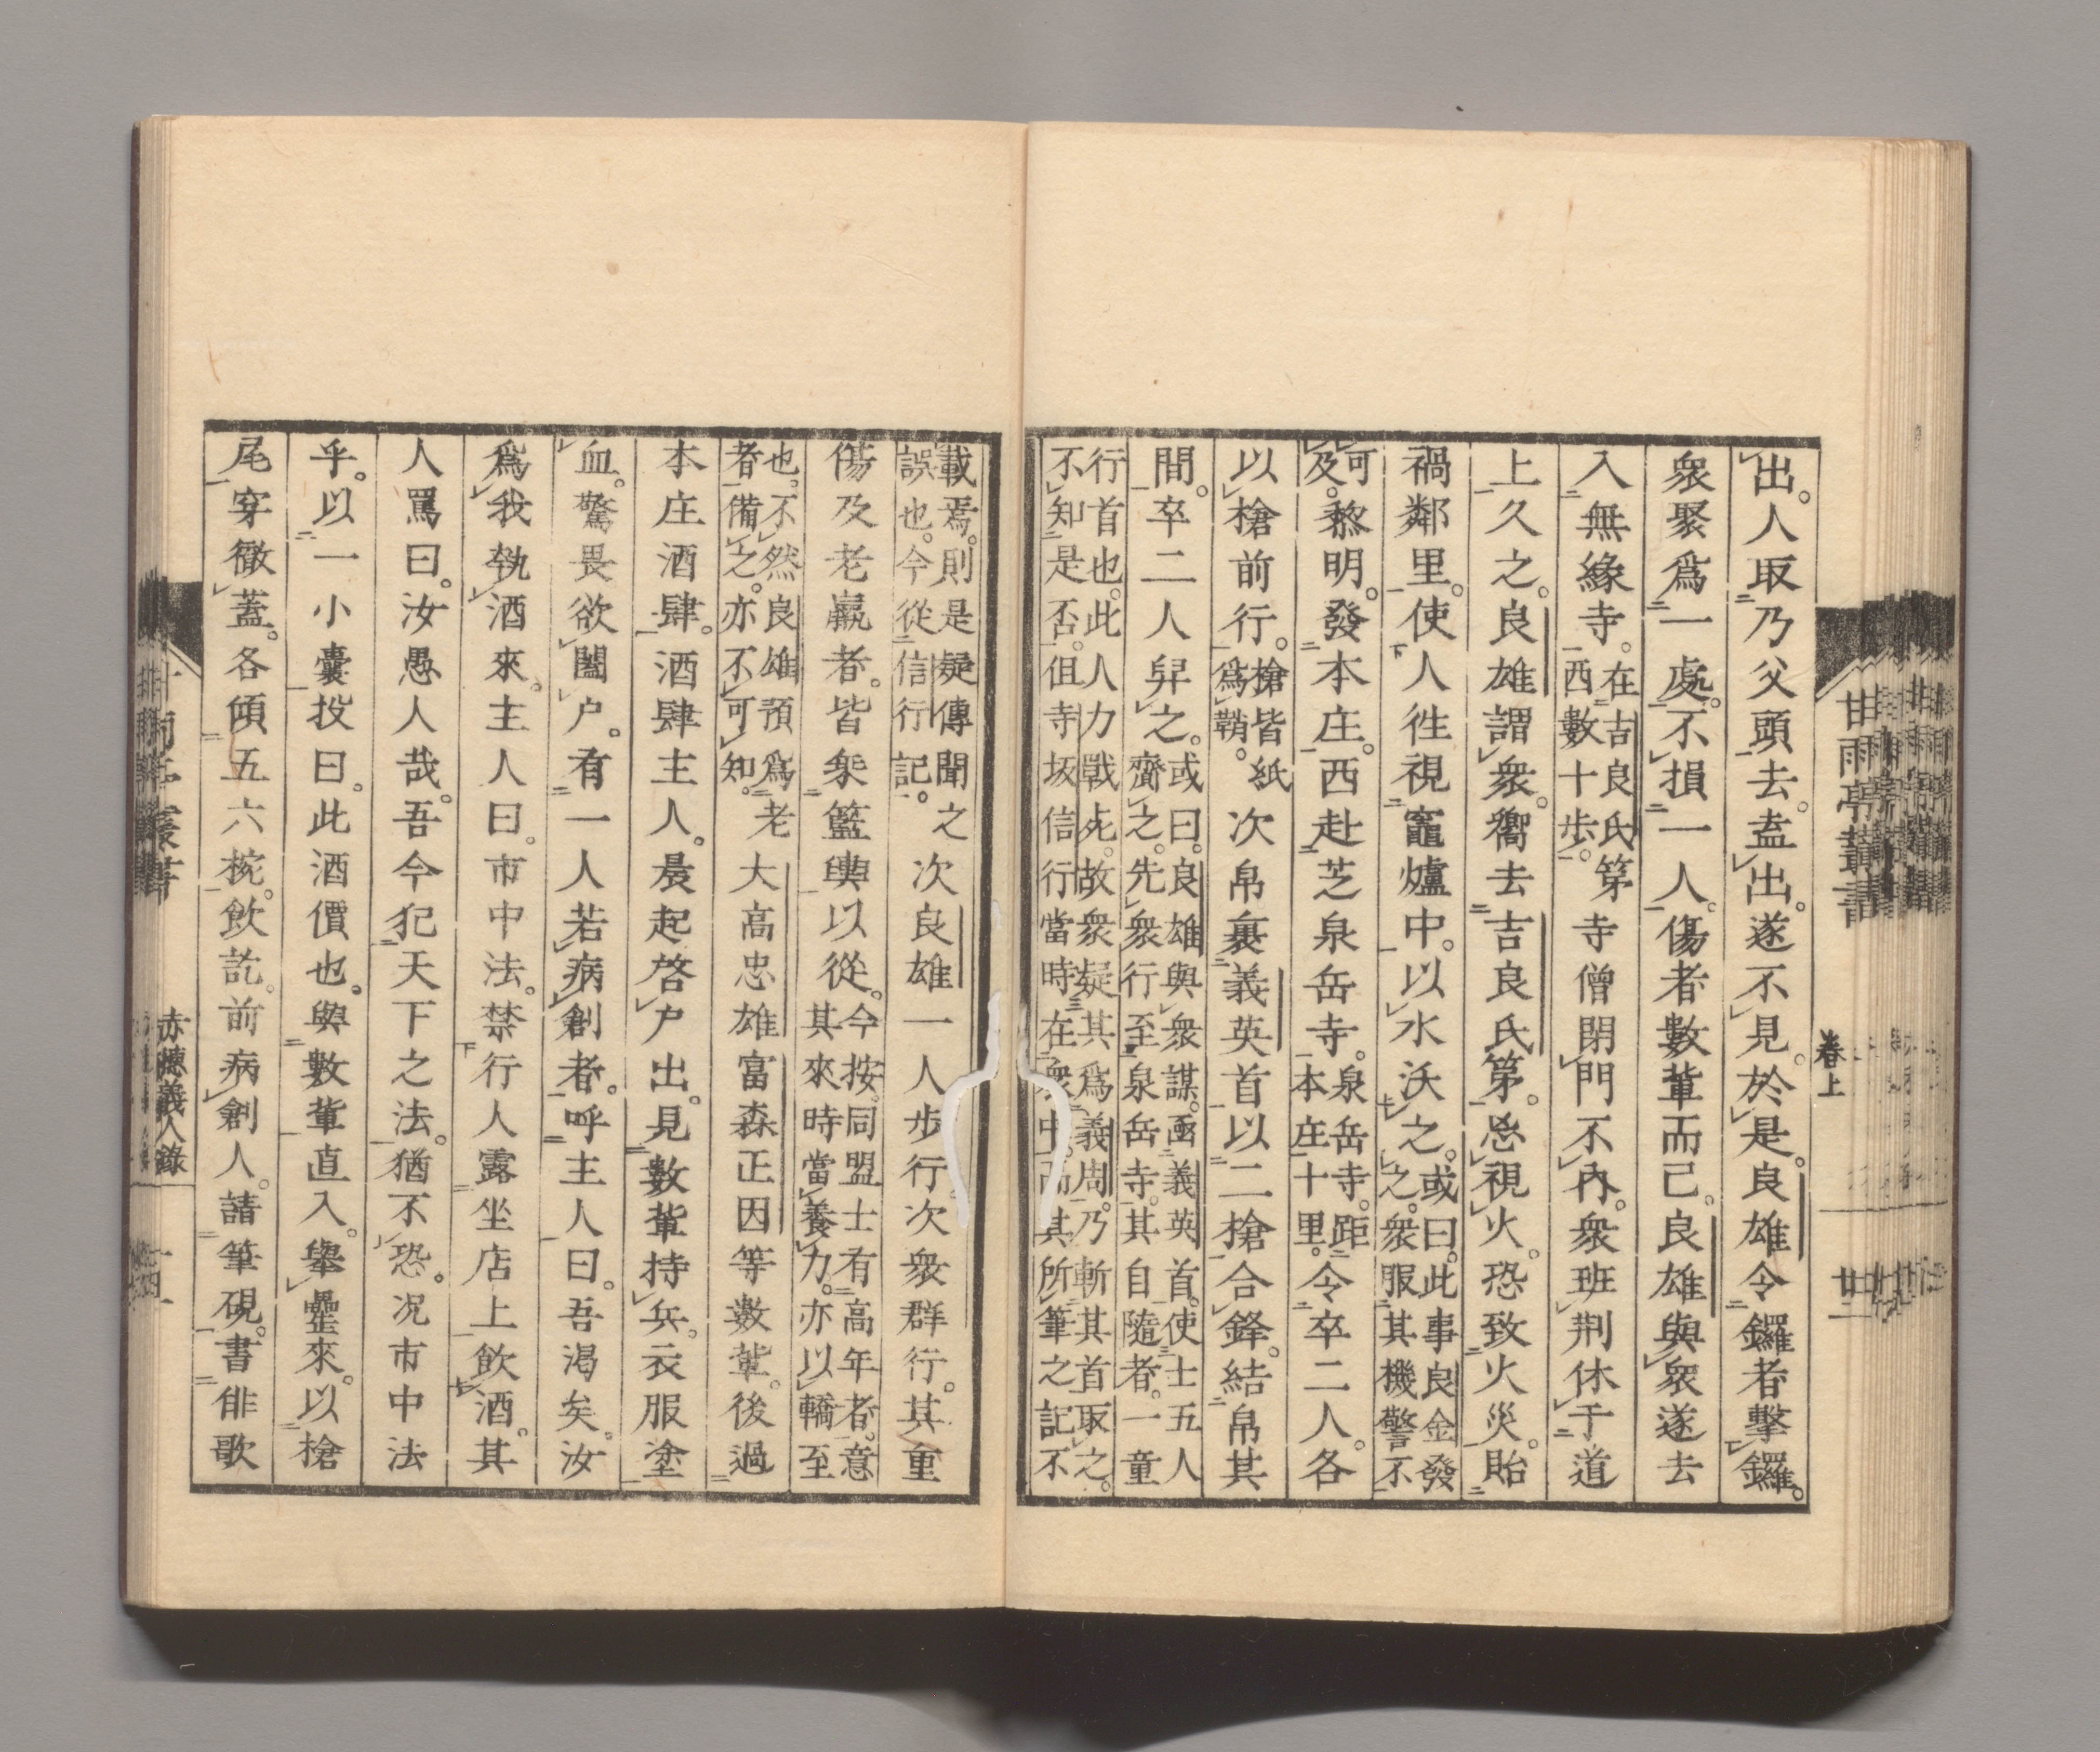 甘雨亭叢書
卷上
廿二
出。人取乃父頭去。盍出。遂不見。於是。良雄令鑼者擊鑼。
衆聚爲一處。不損一人。傷者數輩而已。良雄與衆遂去
入無緣寺。在吉良氏第
西數十步。
寺僧閉門不內。衆班荆休于道
上久之。良雄謂衆。嚮去吉良氏第。怱視火。恐致火災。貽
禍鄰里。使人徃視竈爐中。以水沃之。
或曰。此事良金發
之。衆服其機警不
可
及。
黎明。發本庄。西赴芝泉岳寺。
泉岳寺。距
本庄十里。
令卒二人。各
以槍前行。
槍皆紙
爲鞘。
次帛裹義英首以二槍合鋒。結帛其
間。卒二人舁之。
或曰。良雄與衆謀。函義英首。使士五人
齎之。先衆行至泉岳寺。其自隨者。一童
行首也。此人力戰死。故衆疑其爲義周。乃斬其首取之。
不知是否。但寺坂信行當時在衆中。而其所筆之記不
載焉。則是疑傳聞之
誤也。今從信行記。
次良雄一人步行次衆群行。其重
傷及老羸者。皆乘籃輿以從。
今按。同盟士有高年者。意
其來時當養力。亦以轎至
也。不然良雄預爲老
者備之。亦不可知。
大高忠雄富森正因等數輩。後過
本庄酒肆。酒肆主人。晨起啓户出。見數輩持兵。衣服塗
血。驚畏欲闔户。有一人若病創者。呼主人曰。吾渴矣。汝
爲我執酒來。主人曰。市中法。禁行人露坐店上飲酒。其
人罵曰。汝愚人哉。吾今犯天下之法。猶不恐。况市中法
乎。以一小囊投曰。此酒價也。與數輩直入。舉罍來。以槍
尾穿徹蓋。各傾五六椀。飲訖。前病創人。請筆硯。書俳歌
赤穗義人錄